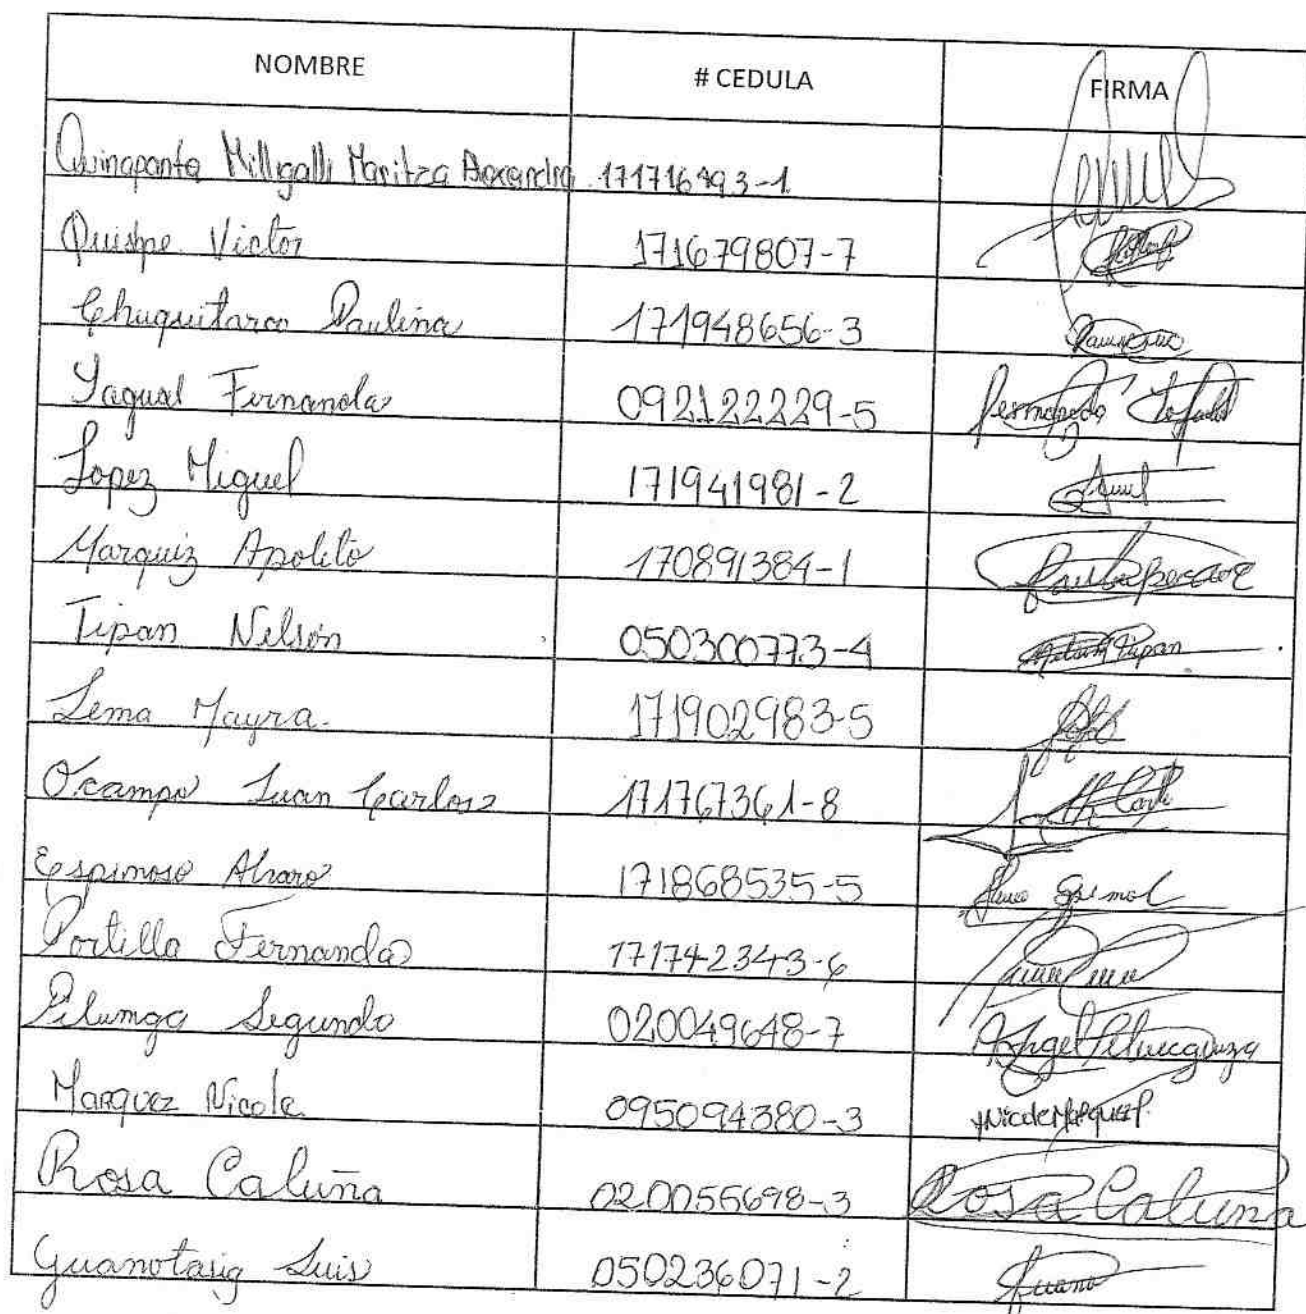 NOMBRE # CEDULA FIRMA
Quinapanta Milligalli Maritza Alexandra 171716493-1
Quishpe Victor 171679807-7
Chuquitarco Paulina 171948656-3
Yagual Fernanda 092122229-5
Lopez Miguel 171941981-2
Marquiz Apolito 170891384-1
Tipan Nelson 050300773-4 Nelson Tipan
Lema Mayra. 171902983-5
Ocampo Juan Carlos 171767361-8
Espinoso Alvaro 171868535-5
Portilla Fernanda 171742343-6
Pilumga Segundo 020049648-7 Angel
Marquez Nicole 095094380-3 Nicole Marquez
Rosa Caluña 020055698-3 Rosa Caluña
Guanotasig Luis 050236071-2